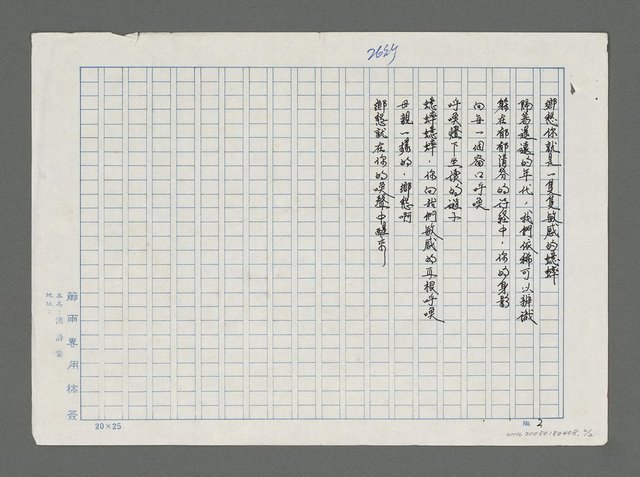 2624
鄉愁你就是一隻隻敏感的蟋蟀
隔著遙遠的年代，我們依稀可以辨識
躲在郁郁清芬的詩経中，你的身影
向每一個窗口呼喚
呼喚燈下坐讀的遊子
蟋蟀蟋蟀，你向我們敏感的耳根呼喚
母親一樣的，鄉愁啊
鄉愁就在你的喚聲中醒來
廊雨專用稿簽
本名：洪詩棠
地址：
20×25
№ 2
NMTL20080180408, 2/2